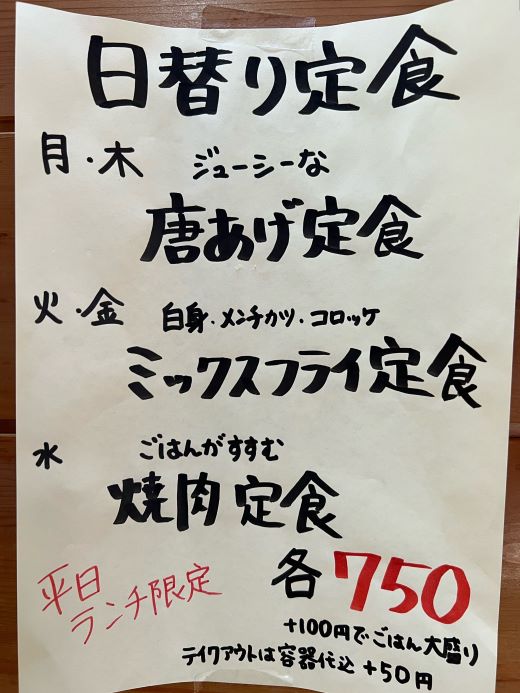 日替り定食
月・木 ジューシーな
唐あげ定食
火・金 白身・メンチカツ・コロッケ
ミックスフライ定食
水 ごはんがすすむ
焼肉定食
各750
平日
ランチ限定
+100円でごはん大盛り
テイクアウトは容器代込+50円